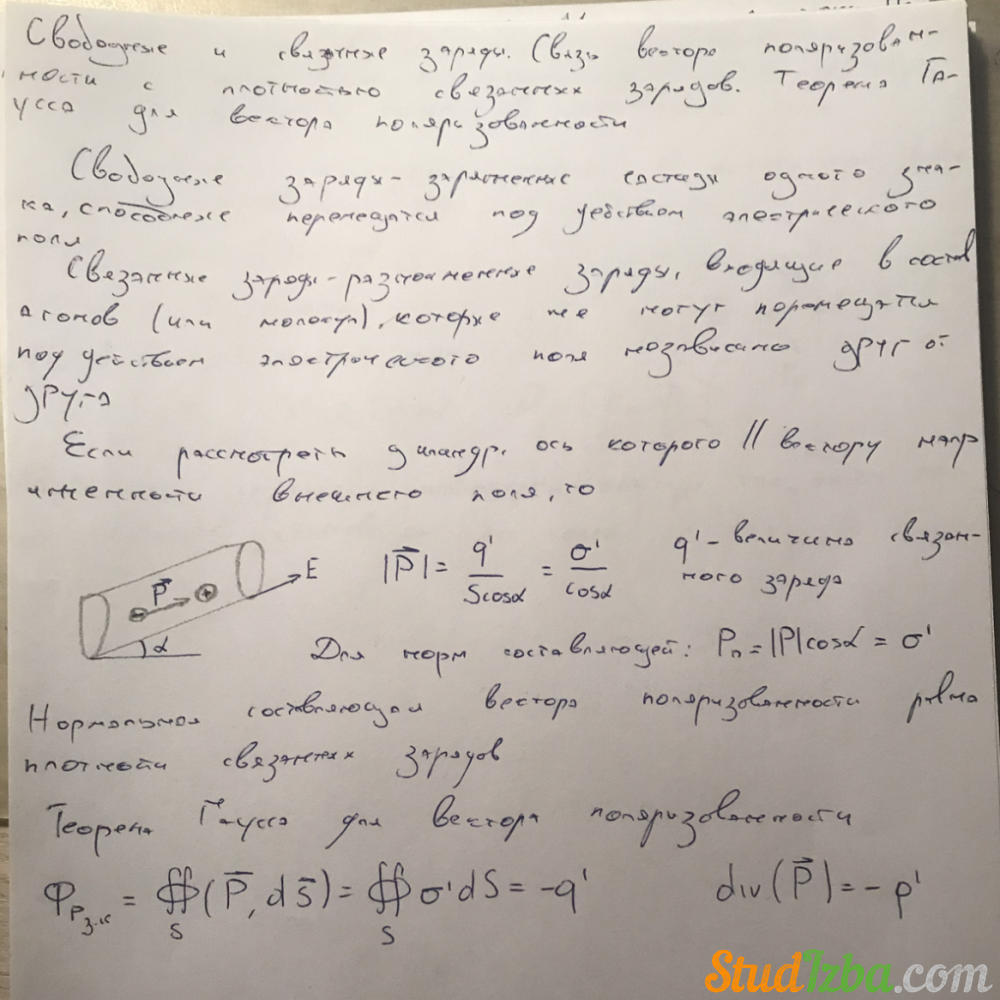 Свободные и связанные заряды. Связь вектора поляризован-
ности с плотностью связанных зарядов. Теорема Га-
усса для вектора поляризованности
Свободные заряды - заряженные частицы одного зна-
ка, способные перемещатся под действием электрического
поля
Связанные заряды - разноименные заряды, входящие в состав
атомов (или молекул), которые не могут перемещатся
под действием электрического поля независимо друг от
друга
Если рассмотреть цилиндр, ось которого || вектору напр
яженности внешнего поля, то
P⃗ E α
|P⃗| = q'/Scosα = σ'/cosα q' - величина связан-
ного заряда
Для норм составляющей: Pₙ = |P|cosα = σ'
Нормальная составляющая вектора поляризованности равна
плотности связанных зарядов
Теорема Гаусса для вектора поляризованности
Φ_P з.к = ∯_S (P⃗, dS⃗) = ∯_S σ'dS = -q' div(P⃗) = -ρ'
StudIzba.com